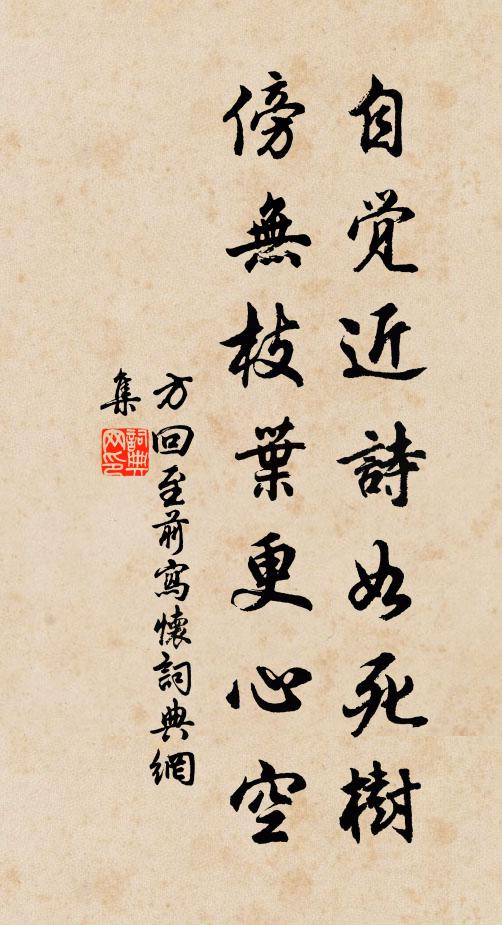 自觉近詩如死樹
傍無枝葉更心空
方回至前寫懷詞典網
集
詞典
网印